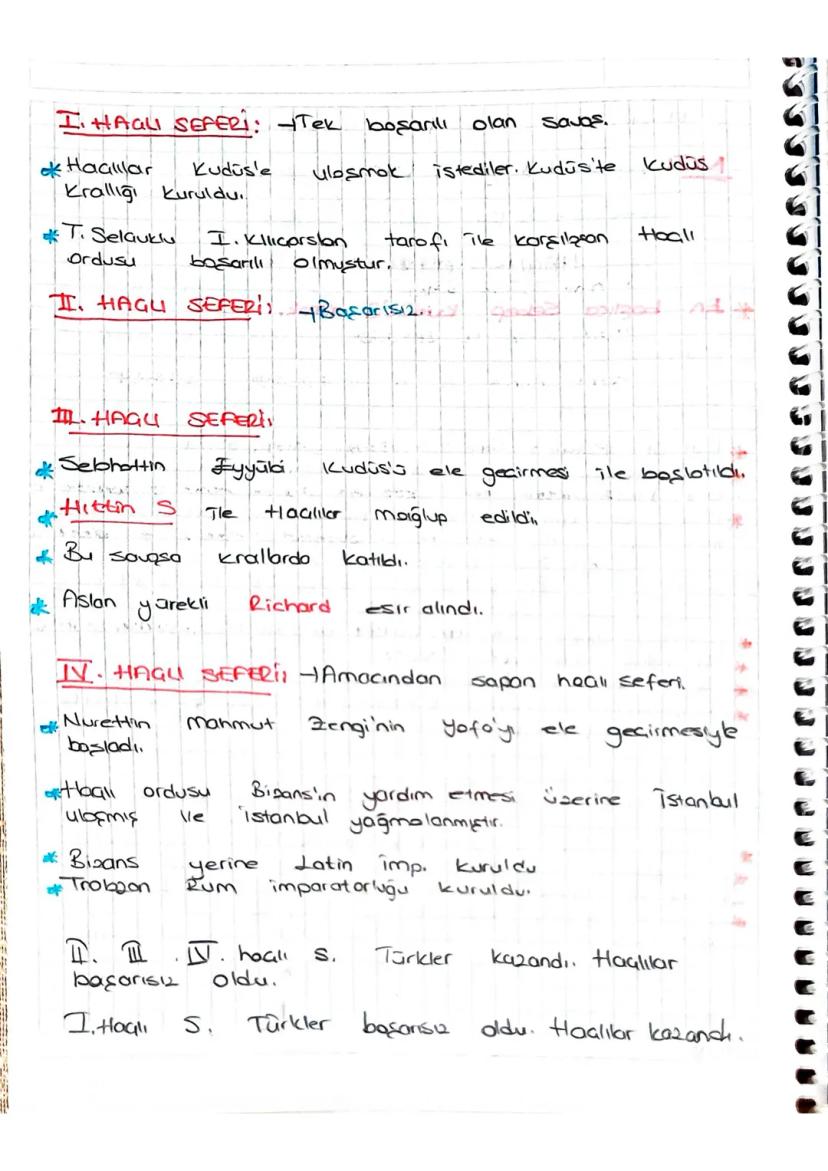 I. HAÇLI SEFERİ: →Tek başarılı olan savaş.
* Haçlılar Kudüs'e ulaşmak istediler. Kudüs'te Kudüs
Krallığı kuruldu.
* T. Selçuklu I. Kılıçarslan tarafı ile karşılaşan Haçlı
ordusu başarılı olmuştur.
II. HAÇLI SEFERİ: →Başarısız.
III. HAÇLI SEFERİ:
* Selahattin Eyyübi Kudüs'ü ele geçirmesi ile başlatıldı.
* Hıttin S ile Haçlılar mağlup edildi.
* Bu savaşa krallarda katıldı.
* Aslan yürekli Richard esir alındı.
IV. HAÇLI SEFERİ: →Amacından sapan haçlı seferi.
* Nurettin mahmut Zengi'nin Yafa'yı ele geçirmesiyle
başladı.
* Haçlı ordusu Bizans'ın yardım etmesi üzerine İstanbul
ulaşmış ve istanbul yağmalanmıştır.
* Bizans yerine Latin imp. kuruldu
* Trabzon Rum imparatorluğu kuruldu.
II. III. IV. haçlı S. Türkler kazandı. Haçlılar
başarısız oldu.
I. Haçlı S. Türkler başarısız oldu. Haçlılar kazandı.